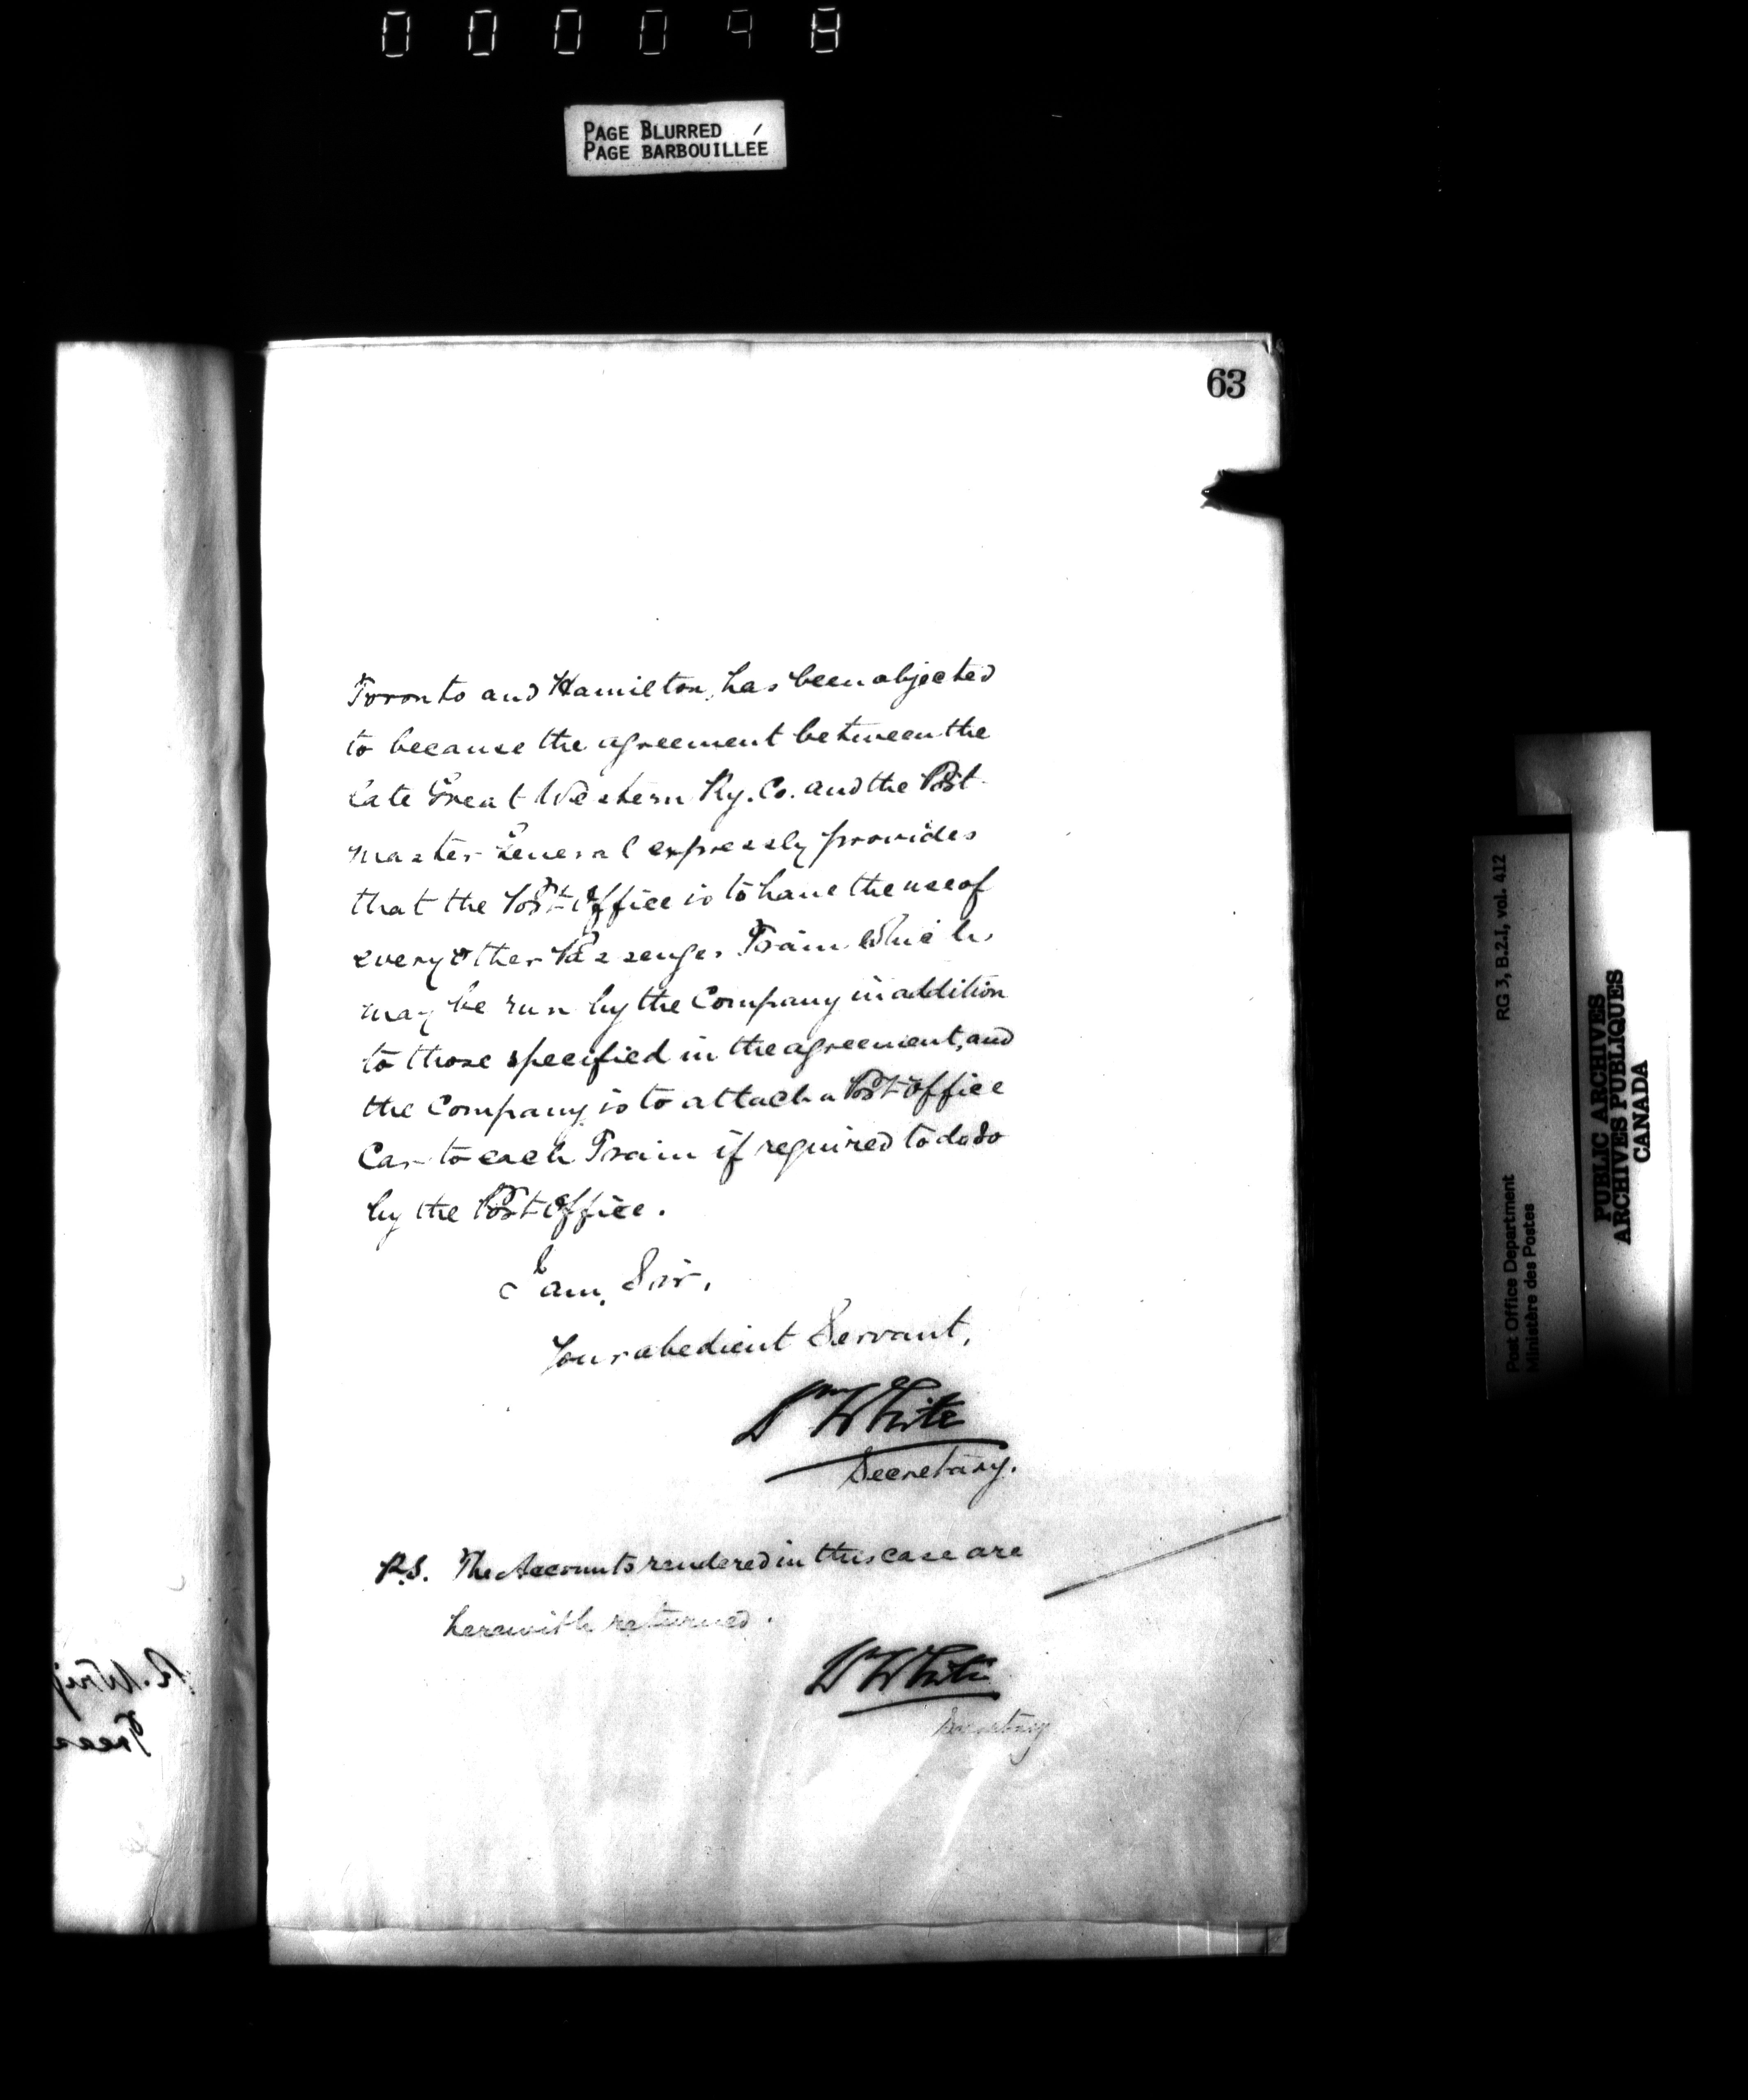 000098
PAGE BLURRED
PAGE BARBOUILLÉE
63
Toronto and Hamilton, has been objected
to because the agreement between the
late Great Western Ry. Co. and the Post-
master General expressly provides
that the Post Office is to have the use of
every other Passenger Train which
may be run by the Company in addition
to those specified in the agreement, and
the Company is to attach a Post Office
Car to each Train if required to do so
by the Post Office.
I am, Sir,
Your obedient Servant,
Wm White
Secretary.
P.S. The Accounts rendered in this case are
herewith returned.
Wm White
Secretary
RG 3, B.2.I, vol. 412
Post Office Department
Ministère des Postes
PUBLIC ARCHIVES
ARCHIVES PUBLIQUES
CANADA